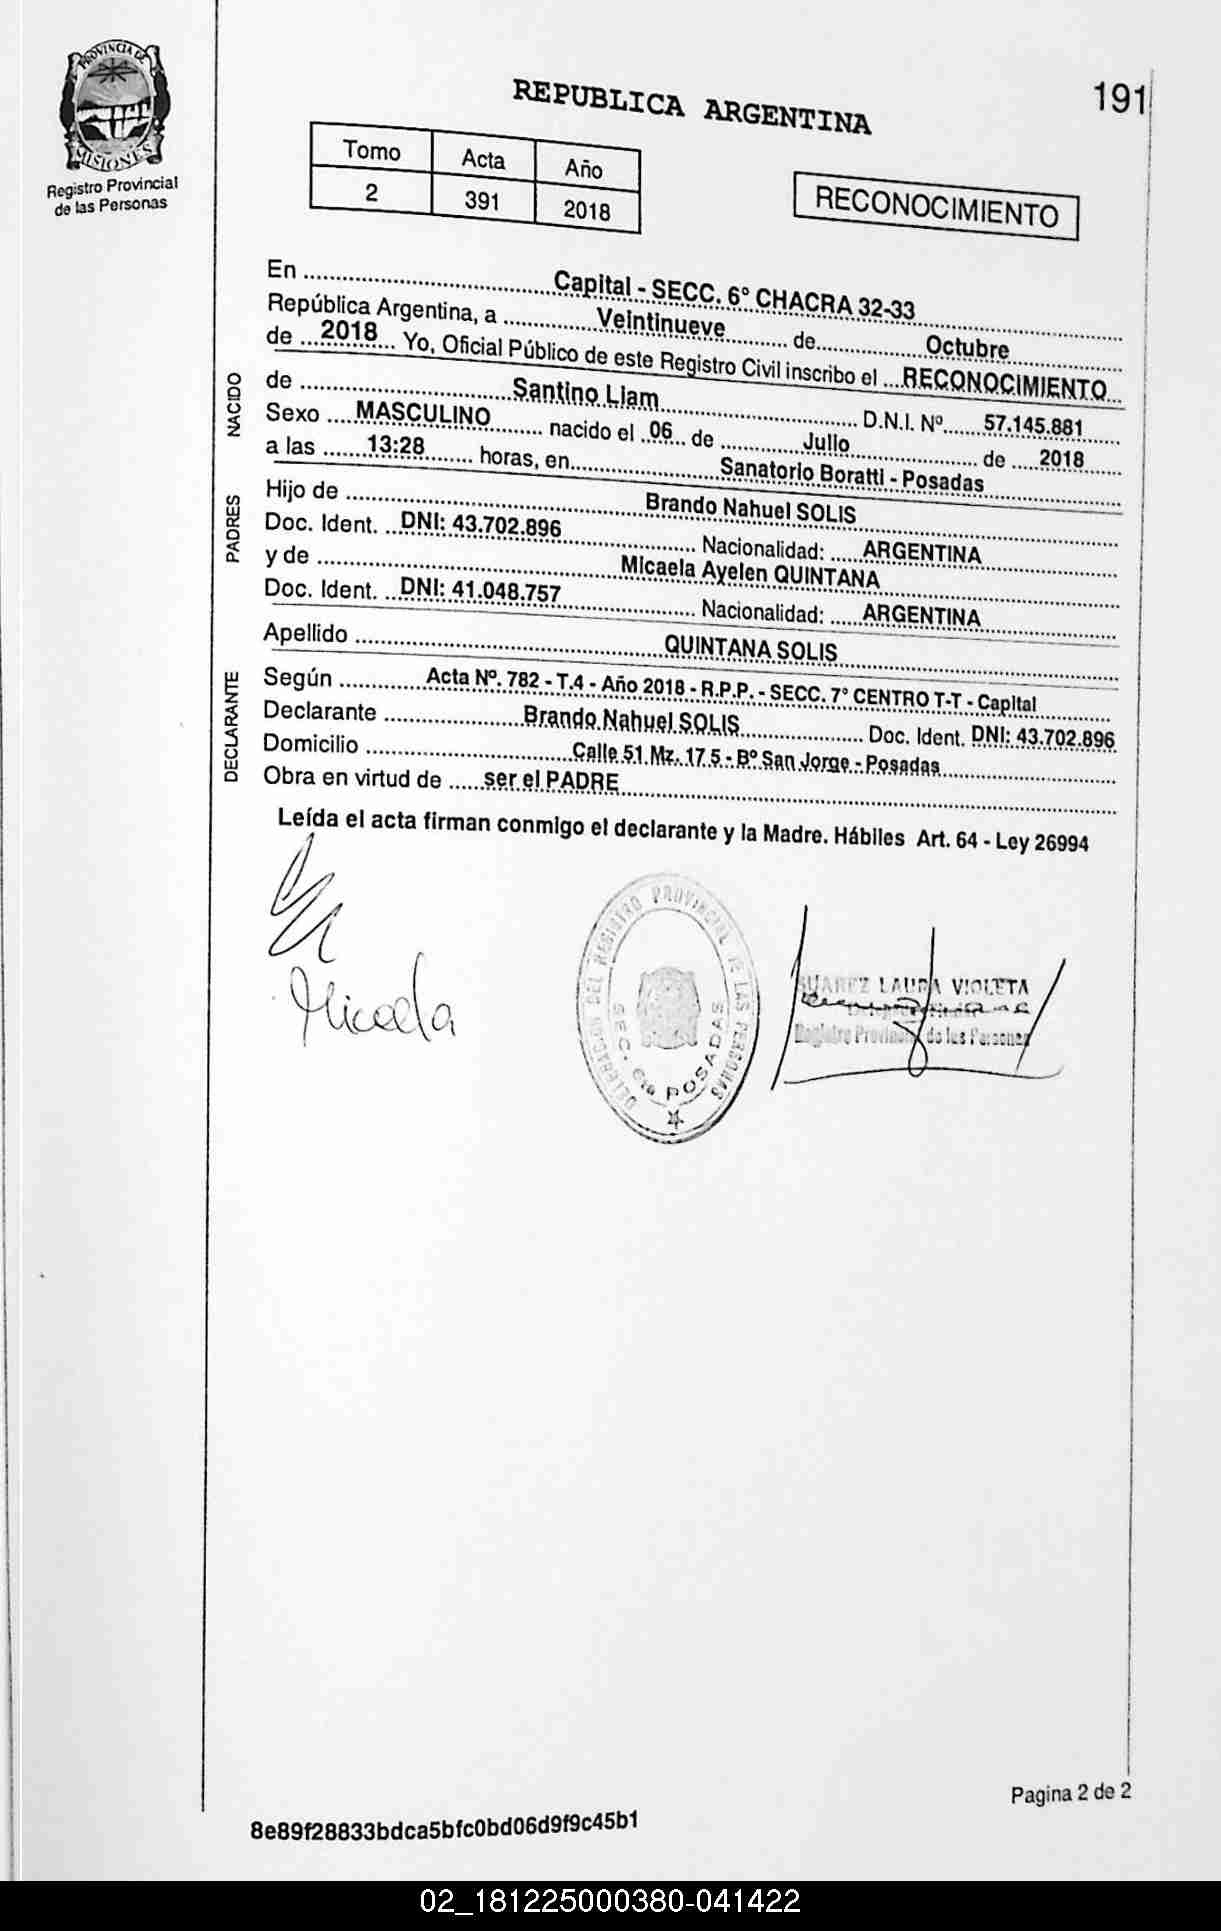 PROVINCIA DE
MISIONES
Registro Provincial
de las Personas
191
REPUBLICA ARGENTINA
Tomo Acta Año
2 391 2018
RECONOCIMIENTO
En ........ Capital - SECC. 6° CHACRA 32-33
República Argentina, a ........ Veintinueve ........ de ........ Octubre
de ... 2018 ... Yo, Oficial Público de este Registro Civil inscribo el ... RECONOCIMIENTO ...
NACIDO
de ........ Santino Liam ........ D.N.I. Nº ...... 57.145.881
Sexo .... MASCULINO ........ nacido el .. 06 ... de ........ Julio ........ de .... 2018
a las ...... 13:28 ....... horas, en ........ Sanatorio Boratti - Posadas
PADRES
Hijo de ........ Brando Nahuel SOLIS
Doc. Ident. .. DNI: 43.702.896 ........ Nacionalidad: ..... ARGENTINA
y de ........ Micaela Ayelen QUINTANA
Doc. Ident. .. DNI: 41.048.757 ........ Nacionalidad: ..... ARGENTINA
Apellido ........ QUINTANA SOLIS
DECLARANTE
Según ........ Acta Nº. 782 - T.4 - Año 2018 - R.P.P. - SECC. 7° CENTRO T-T - Capital
Declarante ........ Brando Nahuel SOLIS ........ Doc. Ident. DNI: 43.702.896
Domicilio ........ Calle 51 Mz. 17 5 - Bº San Jorge - Posadas
Obra en virtud de ..... ser el PADRE
Leída el acta firman conmigo el declarante y la Madre. Hábiles Art. 64 - Ley 26994
Micaela
DELEGACION DEL REGISTRO PROVINCIAL DE LAS PERSONAS
SEC. 6ta POSADAS
SUAREZ LAURA VIOLETA
Registro Provincial de las Personas
Pagina 2 de 2
8e89f28833bdca5bfc0bd06d9f9c45b1
02_181225000380-041422